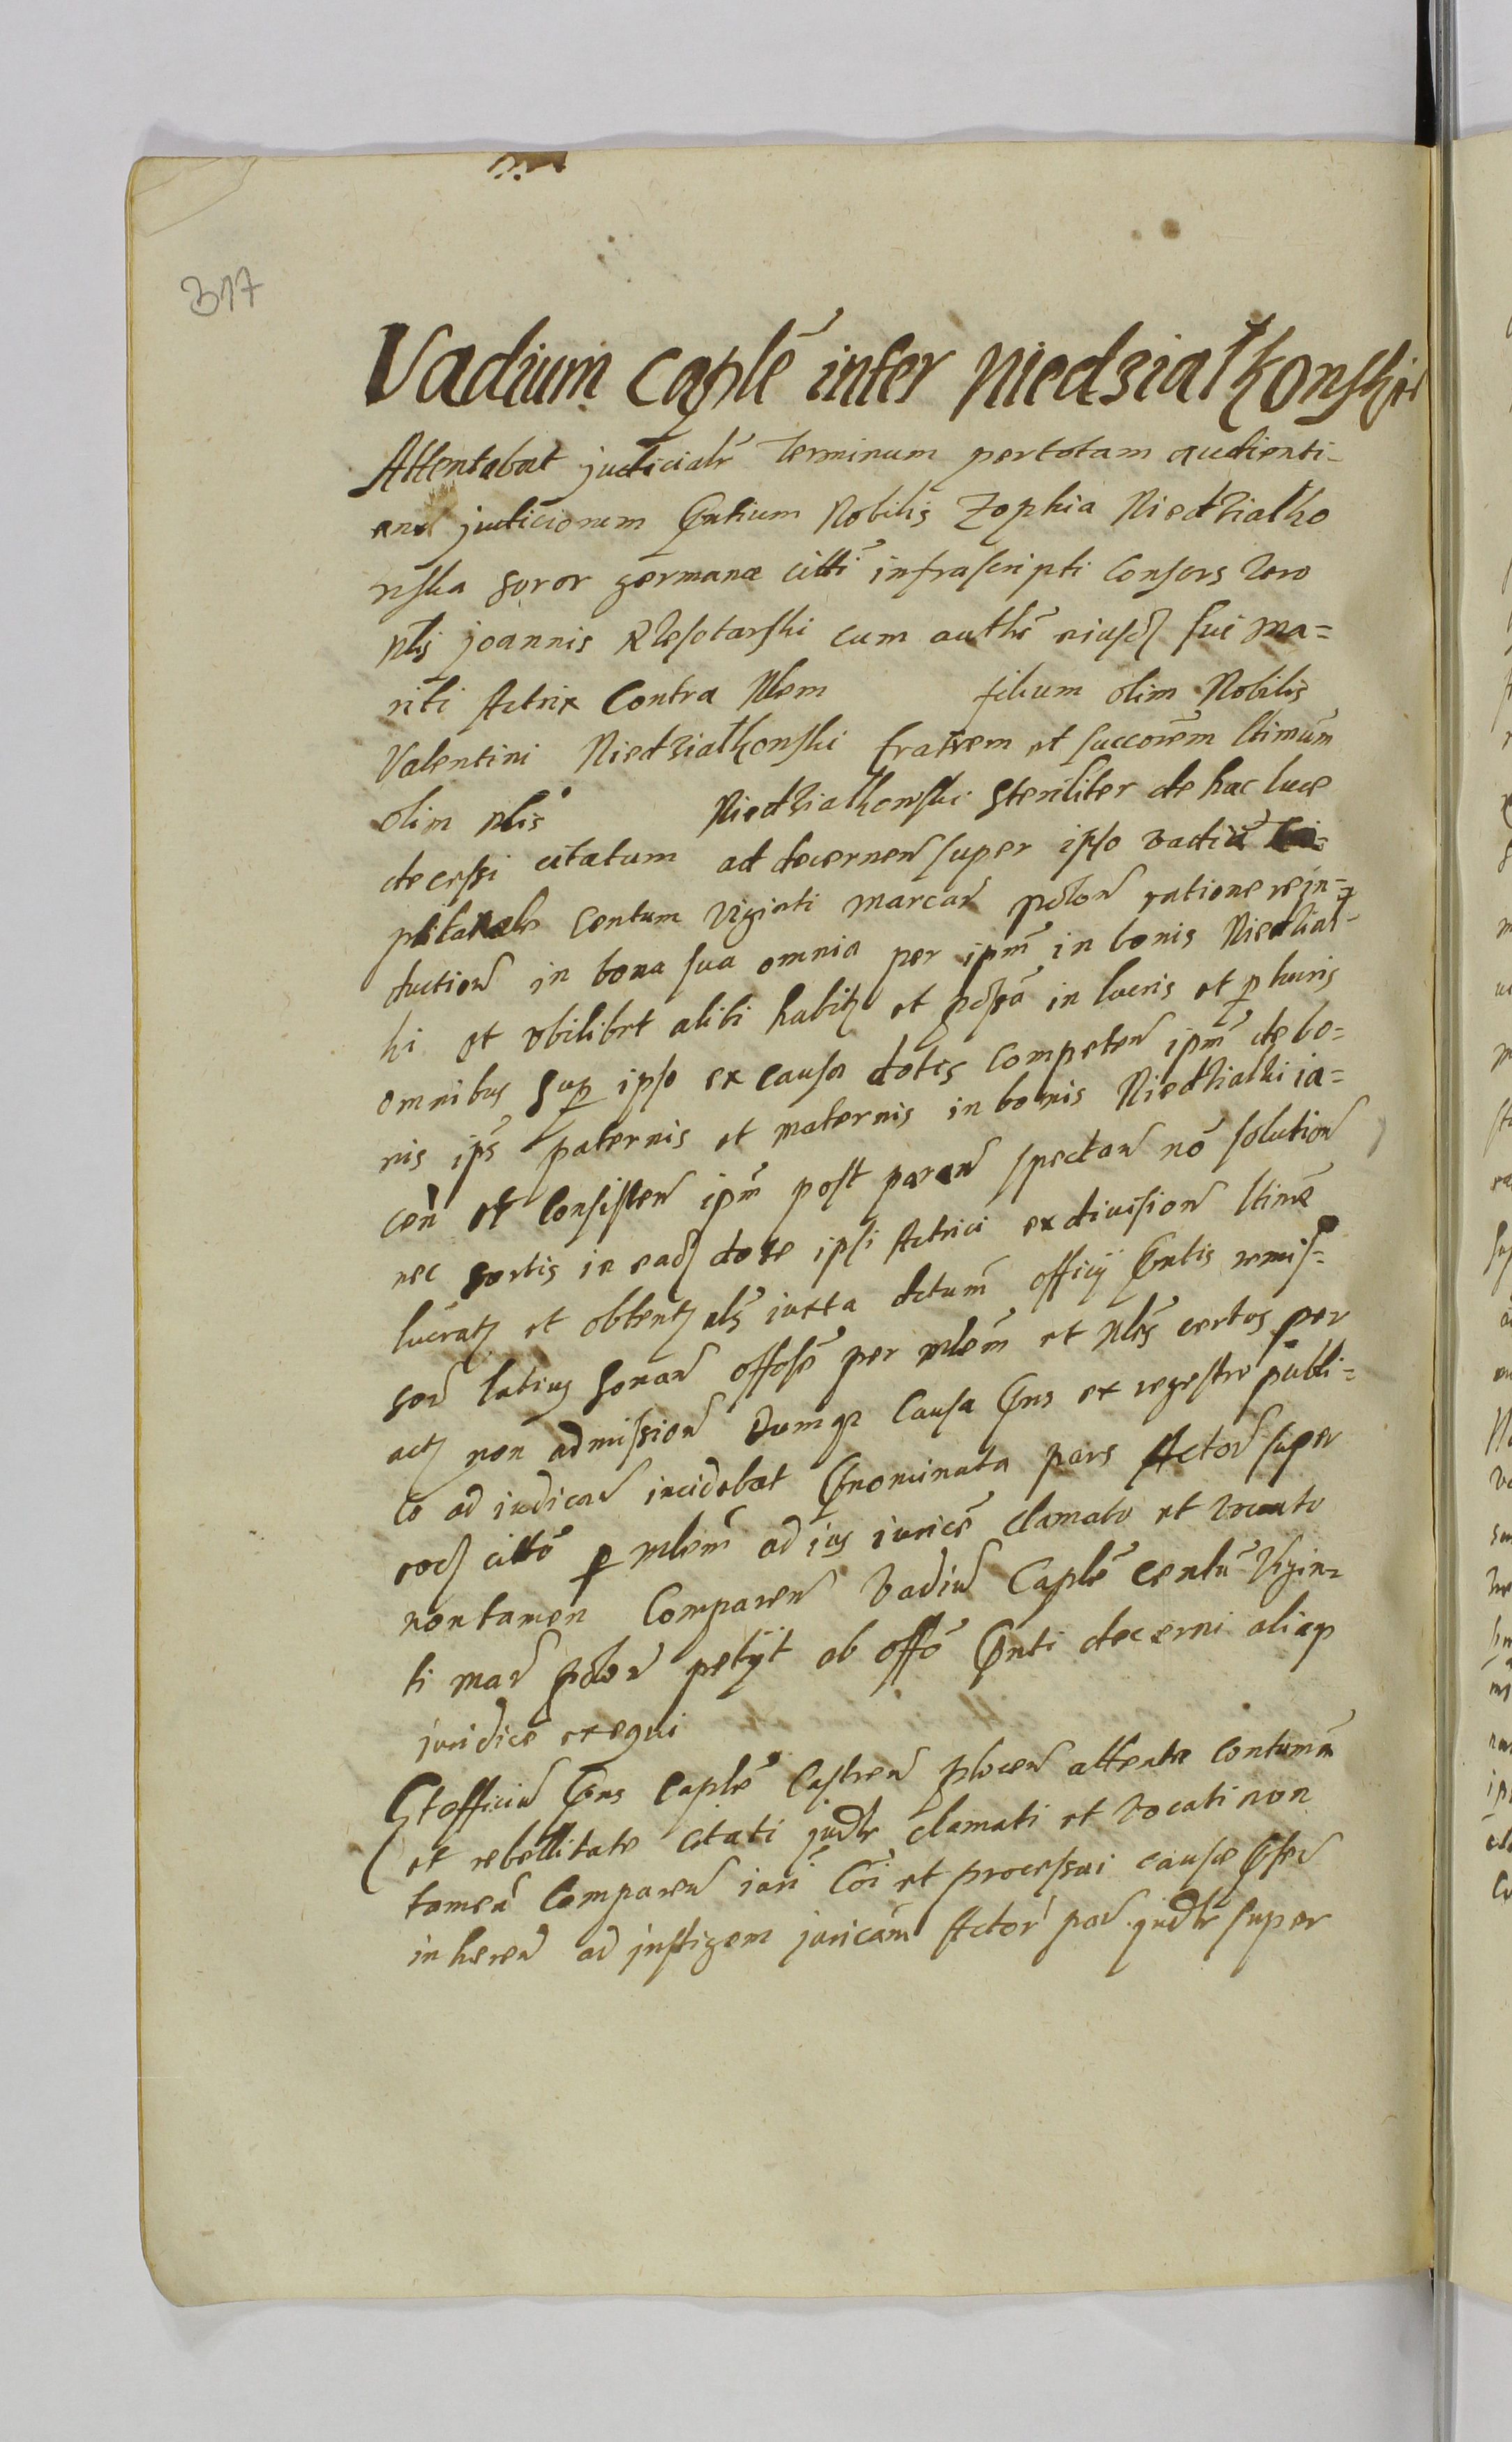 317
Vadium Caplē inter Niedzialkonskie
Attentabat judicialr̄ terminum per totam audienti-
am judiciorum p̄ntium Nobilis Zophia Niedzialko
nska soror germana citti infrascripti Consors vero
nlis joannis cum auth̄e eiusd sui ma=
riti Actrix Contra Nlem filium olim Nobilis
Valentini Niedzialkonski fratrem et succorēm ltimūm
olim nlis Niedzialkonski steriliter de hac luce
decessi citatum ad decernen super ipso vadiū
Centum viginti marcar pclon ratione rein=
duction in bona sua omnia per ipm̄ in bonis Niedzial-
ki et vbilibet alibi habit et possa in lucris et p lucris
omnibus sup ipso ex causa dotis competen ipm̄ de bo=
nis ips paternis et maternis in bonis Niedzialki ia=
cen et consisten ipm̄ post paran spectan nō solution
nec sortis in ead dote ipsi Actrici ex division ltimæ
lucrat et obtent als̄ iuxta dctum̄ officij p̄ntis remis-
sor latius sonan offose per nlem̄ et Nles certos per
act non admission Dumqz Causa p̄ns ex regestro publi=
co ad iudican incidebat p̄nominata pars Actor super
eod cittō p nlem̄ ad ius iuricē clamato et vocato
non tamen Comparen vadiū Caplē centū vigin=
ti mar pclon petijt ab offō p̄nti decerni aliaqz
juridicē exequi
Et officiū p̄ns Caplē Castren plocen attenta contumā
et rebellitate citati judlr̄ clamati et vocati non
tamen Comparen iuri Cōi et processui causæ p̄sen
inheren ad instigem juricām Actor par judlr̄ super